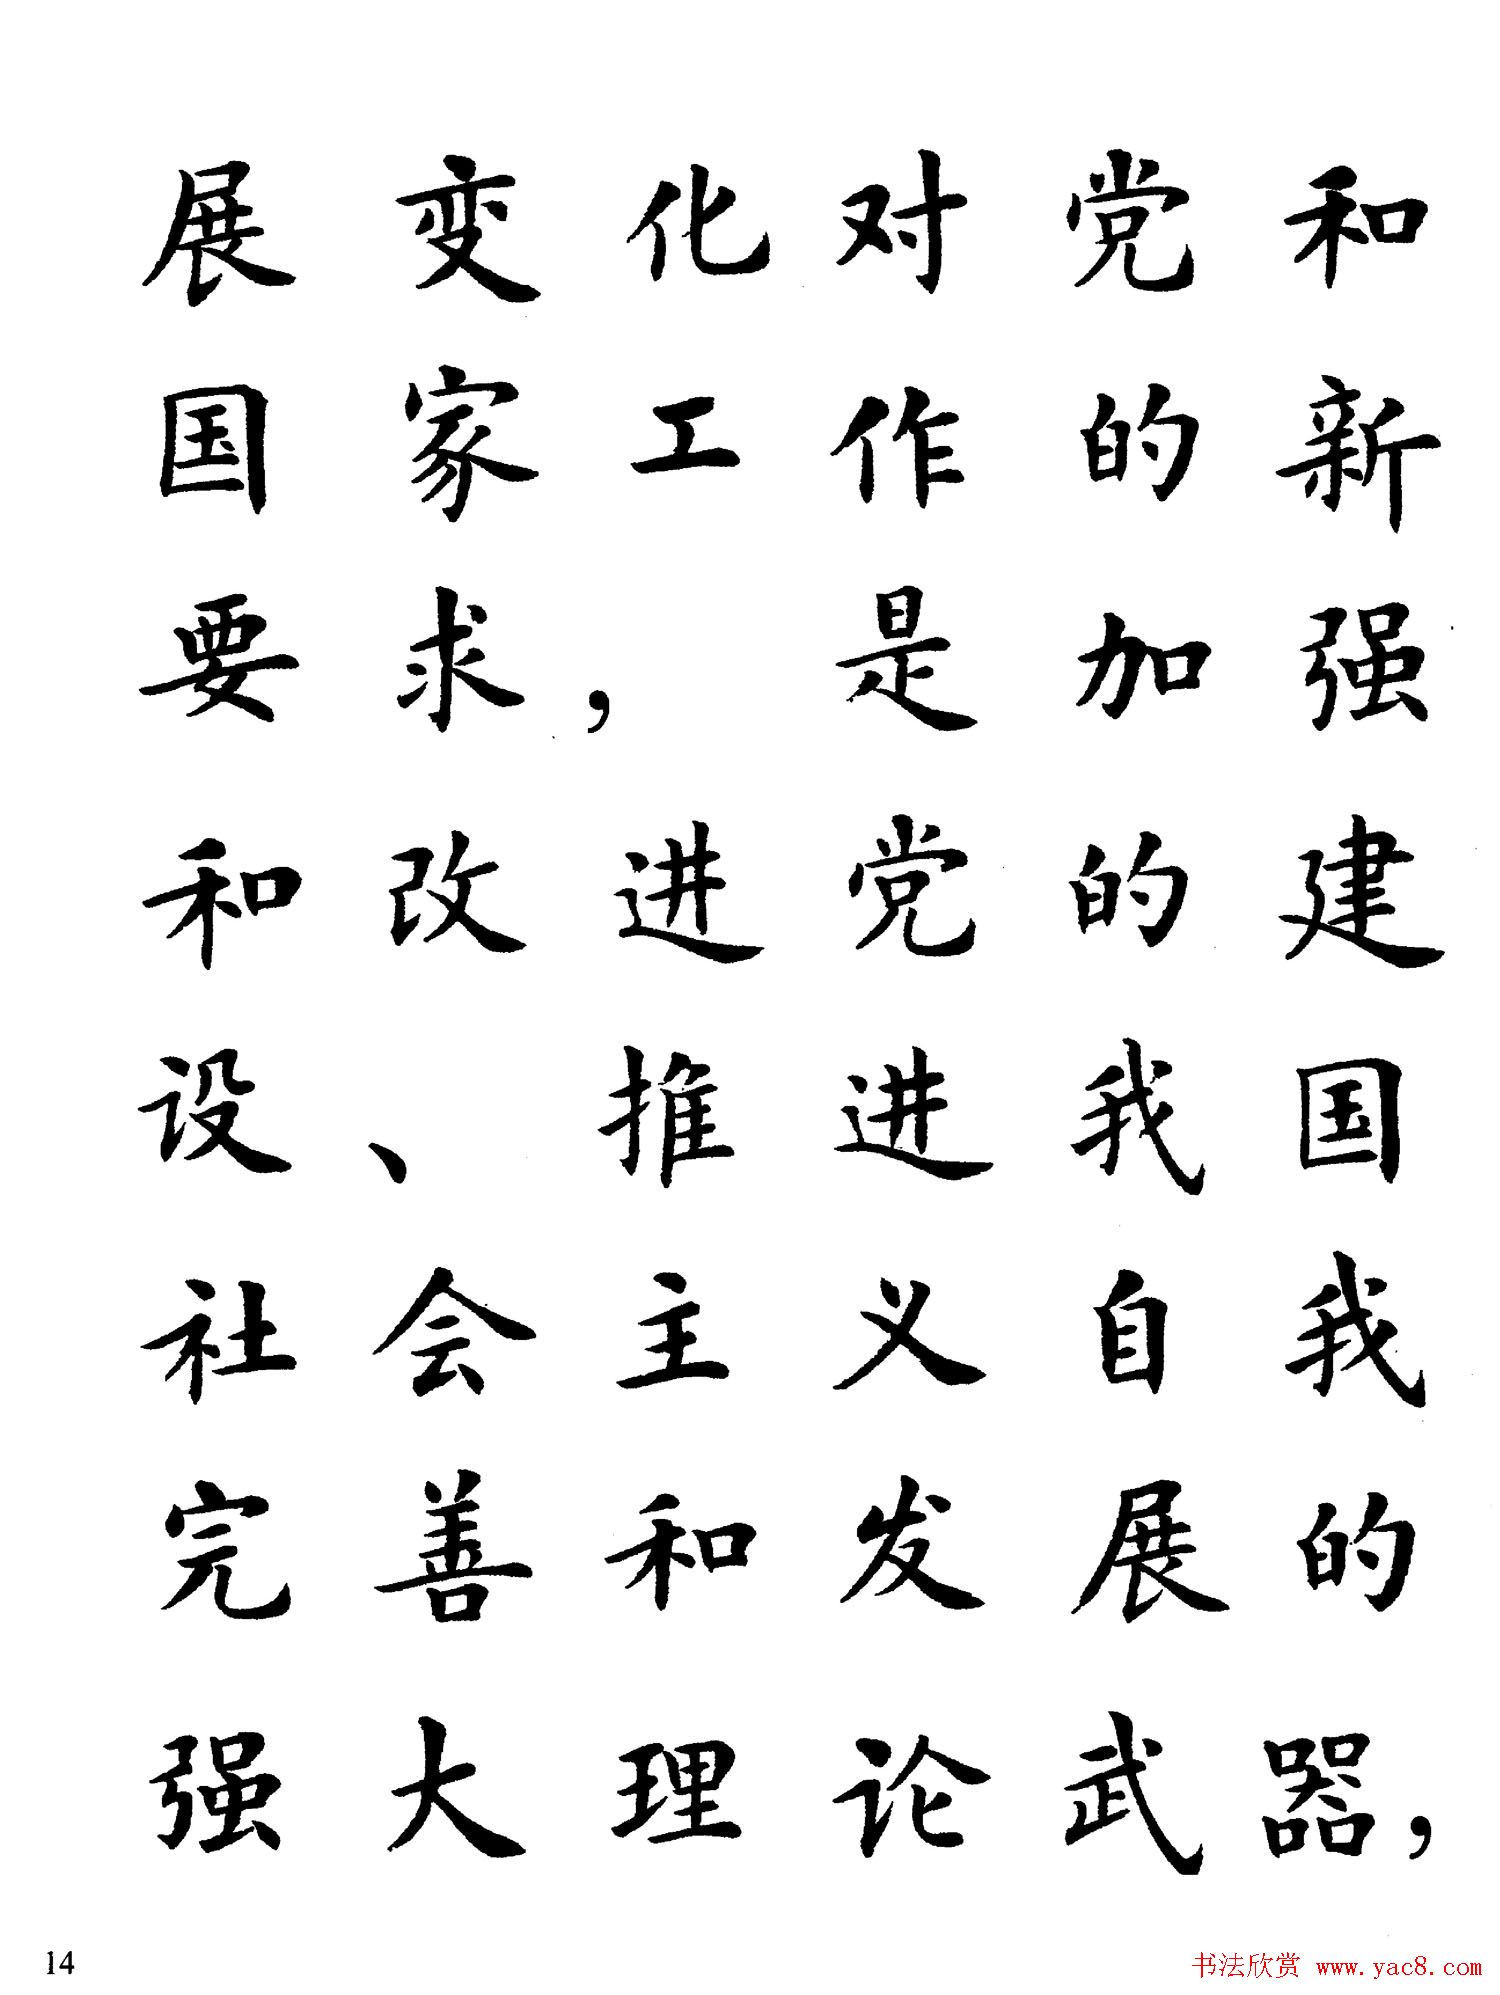 展变化对党和
国家工作的新
要求，是加强
和改进党的建
设、推进我国
社会主义自我
完善和发展的
强大理论武器，
14
书法欣赏 www.yac8.com